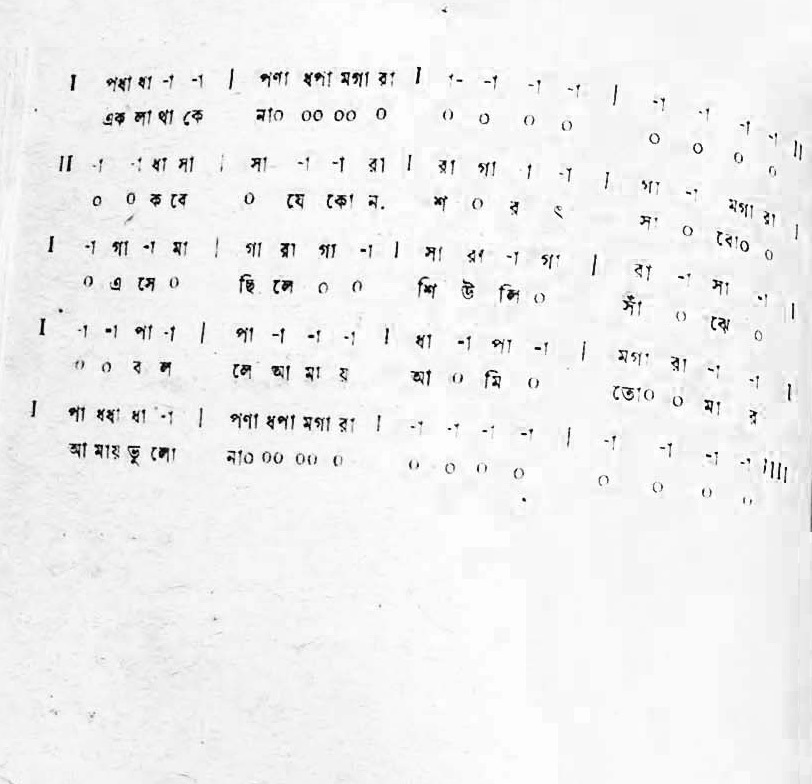 I পধা ধা -া -া | পণা ধপা মগা রা I া- -া -া -া | -া -া -া -া II
এক লা থা কে না০ ০০ ০০ ০ ০ ০ ০ ০ ০ ০ ০ ০
II -া -া ধা সা | সা -া -া রা I রা গা া -া I গা -া মগা রা |
০ ০ ক বে ০ যে কো ন. শ ০ র ৎ সা ০ বো০ ০
I -া গা -া মা | গা রা গা -া | সা রা -া গা | রা -া সা -া |
০ এ সে ০ ছি লে ০ ০ শি উ লি ০ সাঁ ০ ঝে ০
I -া -া পা -া | পা -া -া -া I ধা -া পা -া | মগা রা -া -া |
০ ০ ব ল লে আ মা য় আ ০ মি ০ তো০ ০ মা র
I পা ধধা ধা -া | পণা ধপা মগা রা I -া -া -া -া | -া -া -া -া IIII
আ মায় ভু লো না০ ০০ ০০ ০ ০ ০ ০ ০ ০ ০ ০ ০